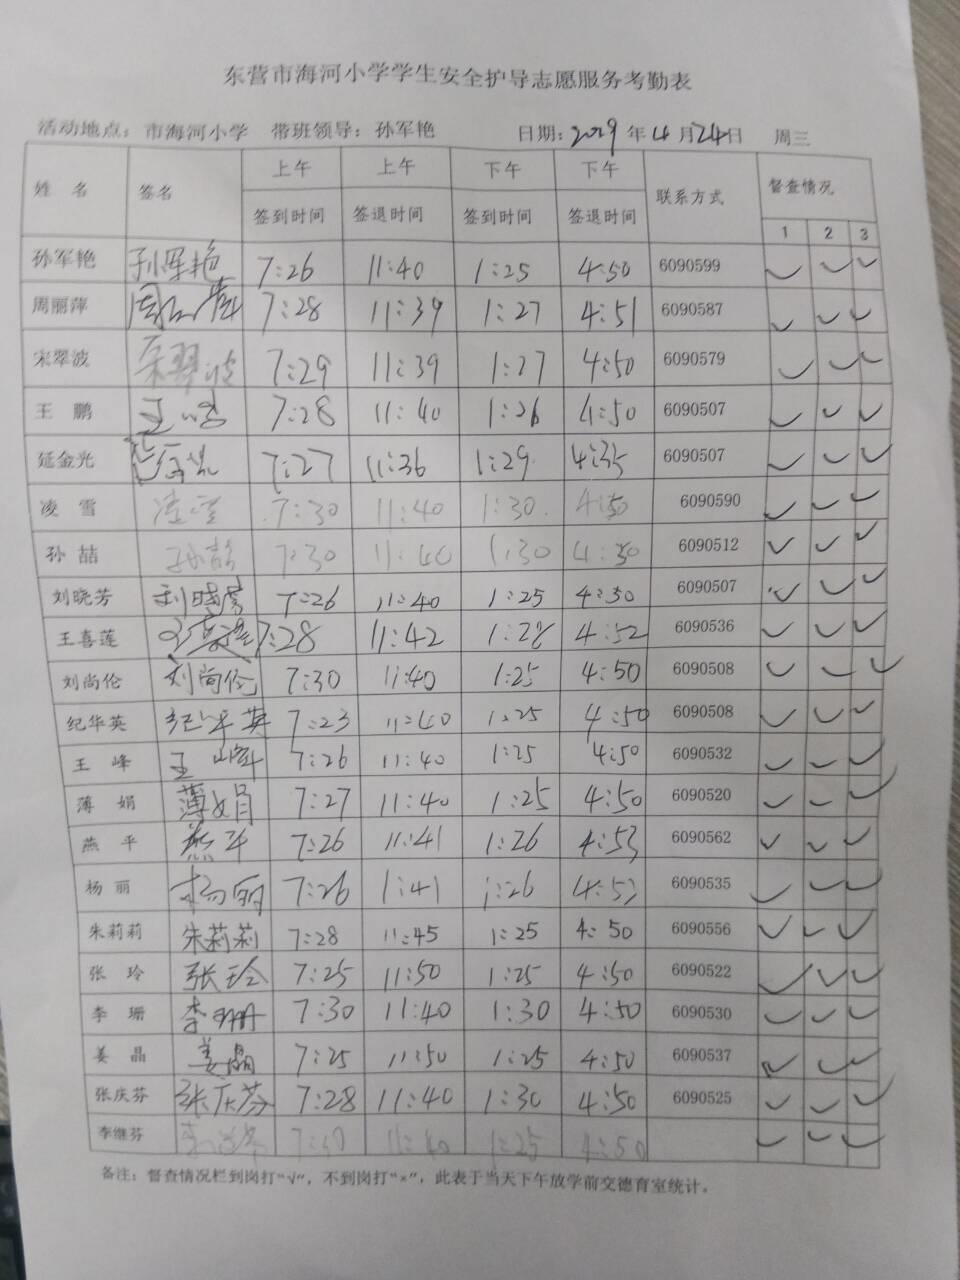 东营市海河小学学生安全护导志愿服务考勤表
活动地点：市海河小学 带班领导：孙军艳 日期：2019 年 4 月 24 日 周三
姓 名 签名 上午 上午 下午 下午 联系方式 督查情况
签到时间 签退时间 签到时间 签退时间 1 2 3
孙军艳 孙军艳 7:26 11:40 1:25 4:50 6090599 ✓ ✓ ✓
周丽萍 周丽萍 7:28 11:39 1:27 4:51 6090587 ✓ ✓ ✓
宋翠波 宋翠波 7:29 11:39 1:27 4:50 6090579 ✓ ✓ ✓
王 鹏 王鹏 7:28 11:40 1:26 4:50 6090507 ✓ ✓ ✓
延金光 7:27 11:36 1:29 4:35 6090507 ✓ ✓ ✓
凌 雪 凌雪 7:30 11:40 1:30 4:50 6090590 ✓ ✓ ✓
孙 喆 7:30 11:40 1:30 4:50 6090512 ✓ ✓ ✓
刘晓芳 刘晓芳 7:26 11:40 1:25 4:30 6090507 ✓ ✓ ✓
王喜莲 7:28 11:42 1:28 4:52 6090536 ✓ ✓ ✓
刘尚伦 刘尚伦 7:30 11:40 1:25 4:50 6090508 ✓ ✓ ✓
纪华英 纪华英 7:23 11:40 1:25 4:50 6090508 ✓ ✓ ✓
王 峰 王峰 7:26 11:40 1:25 4:50 6090532 ✓ ✓ ✓
薄 娟 薄娟 7:27 11:40 1:25 4:50 6090520 ✓ ✓ ✓
燕 平 燕平 7:26 11:41 1:26 4:53 6090562 ✓ ✓ ✓
杨 丽 杨丽 7:26 1:41 1:26 4:53 6090535 ✓ ✓ ✓
朱莉莉 朱莉莉 7:28 11:45 1:25 4:50 6090556 ✓ ✓ ✓
张 玲 张玲 7:25 11:50 1:25 4:50 6090522 ✓ ✓ ✓
李 珊 李珊 7:30 11:40 1:30 4:50 6090530 ✓ ✓ ✓
姜 晶 姜晶 7:25 11:50 1:25 4:50 6090537 ✓ ✓ ✓
张庆芬 张庆芬 7:28 11:40 1:30 4:50 6090525 ✓ ✓ ✓
李继芬 11:40 1:25 4:50 ✓ ✓ ✓
备注：督查情况栏到岗打“√”，不到岗打“×”，此表于当天下午放学前交德育室统计。